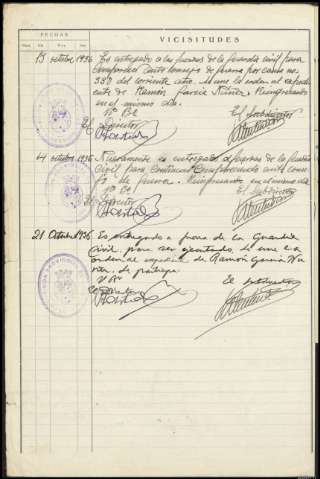 FECHAS
VICISITUDES
Mes
Año
13 octubre 1936 Es entregado a las fuerzas de la Guardia Civil para
comparecer ante consejo de guerra por causa nº
380 del corriente año. Se une la orden al expedi
ente de Ramón García Núñez. Reingresando
en el mismo día.
Vº Bº
El Director
El Subdirector
14 octubre 1936 Nuevamente es entregado a fuerzas de la Guardia
Civil para continuar compareciendo ante conse
jo de guerra. Reingresando en el mismo día
Vº Bº
El Director
El Subdirector
21 Octubre 1936 Es entregado a fuerza de la Guardia
Civil para ser ejecutado. Se une la
orden al expediente de Ramón García Nu
Vº Bº
El Director
El Subdirector